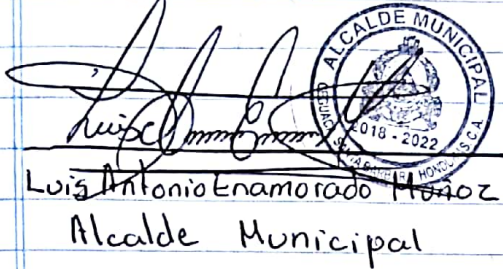 ALCALDE MUNICIPAL
2018 - 2022
SANTA BARBARA HONDURAS, C.A.
Luis Antonio Enamorado Muñoz
Alcalde Municipal